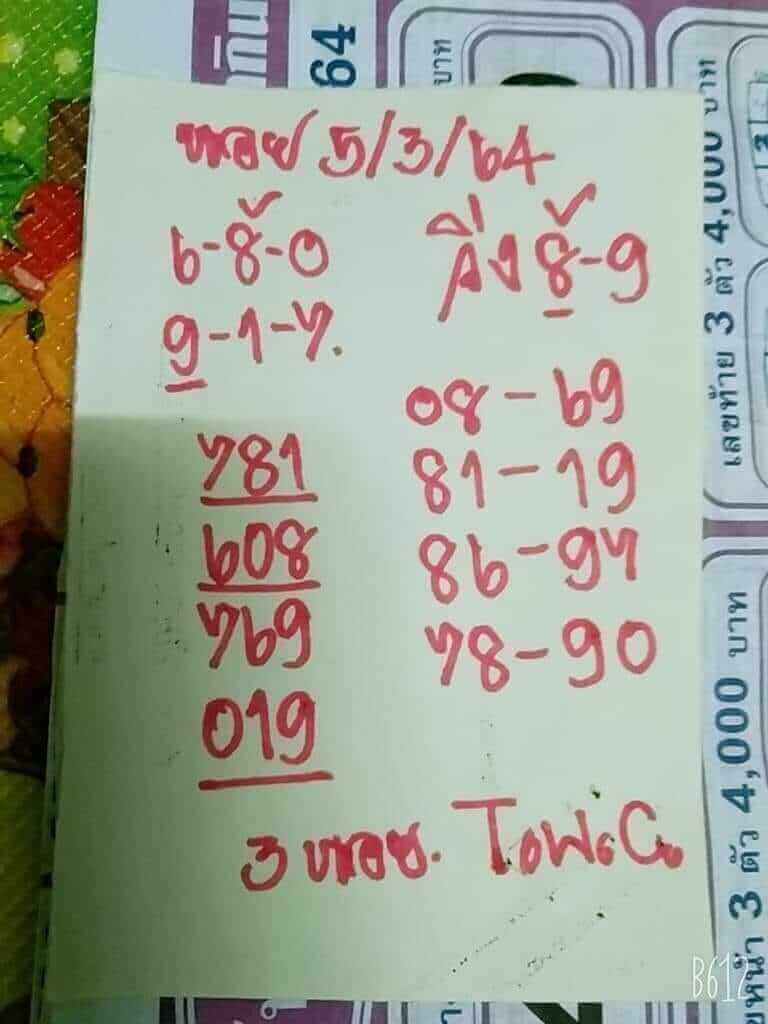 หอย 5/3/64
6-8-0
วิ่ง 8-9
9-1-7.
08-69
781
81-19
608
86-97
769
78-90
019
3 หอย.
64
บาท
เลขท้าย 3 ตัว 4,000 บาท
หน้า 3 ตัว 4,000 บาท
B612